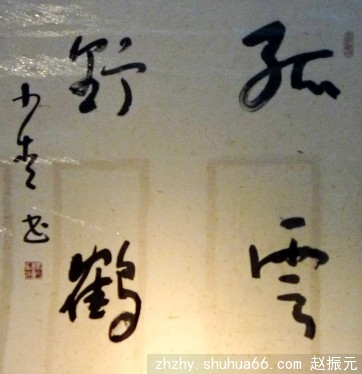 孤雲
野鶴
少 书
zhzhy.shuhua66.com 赵振元